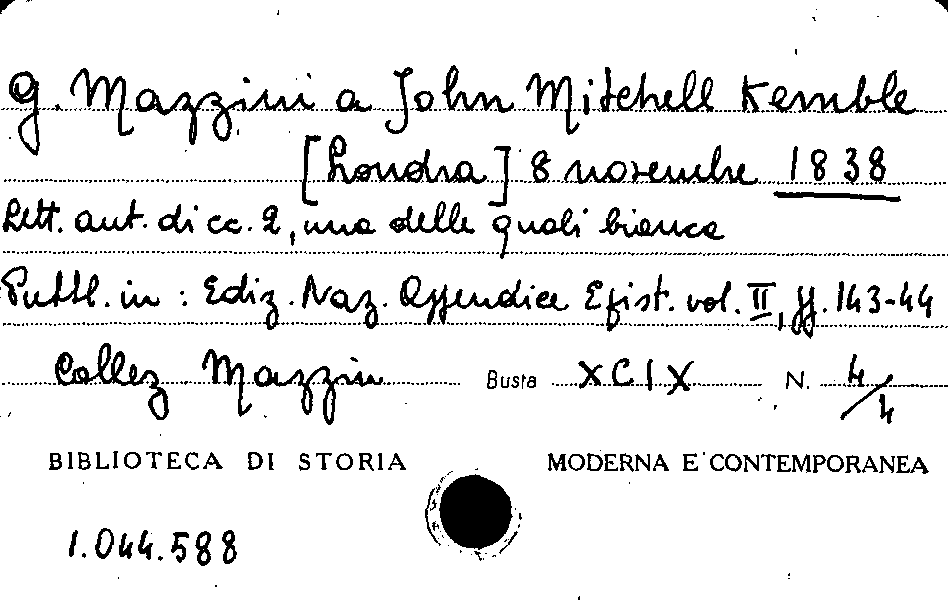 G. Mazzini a John Mitchell Kemble
[Londra] 8 novembre 1838
Lett. aut. di cc. 2, una delle quali bianca
Pubbl. in: Ediz. Naz. Appendice Epist. vol. II, pp. 143-44
Collez Mazzini Busta XCIX N. 4/4
BIBLIOTECA DI STORIA MODERNA E CONTEMPORANEA
1.044.588